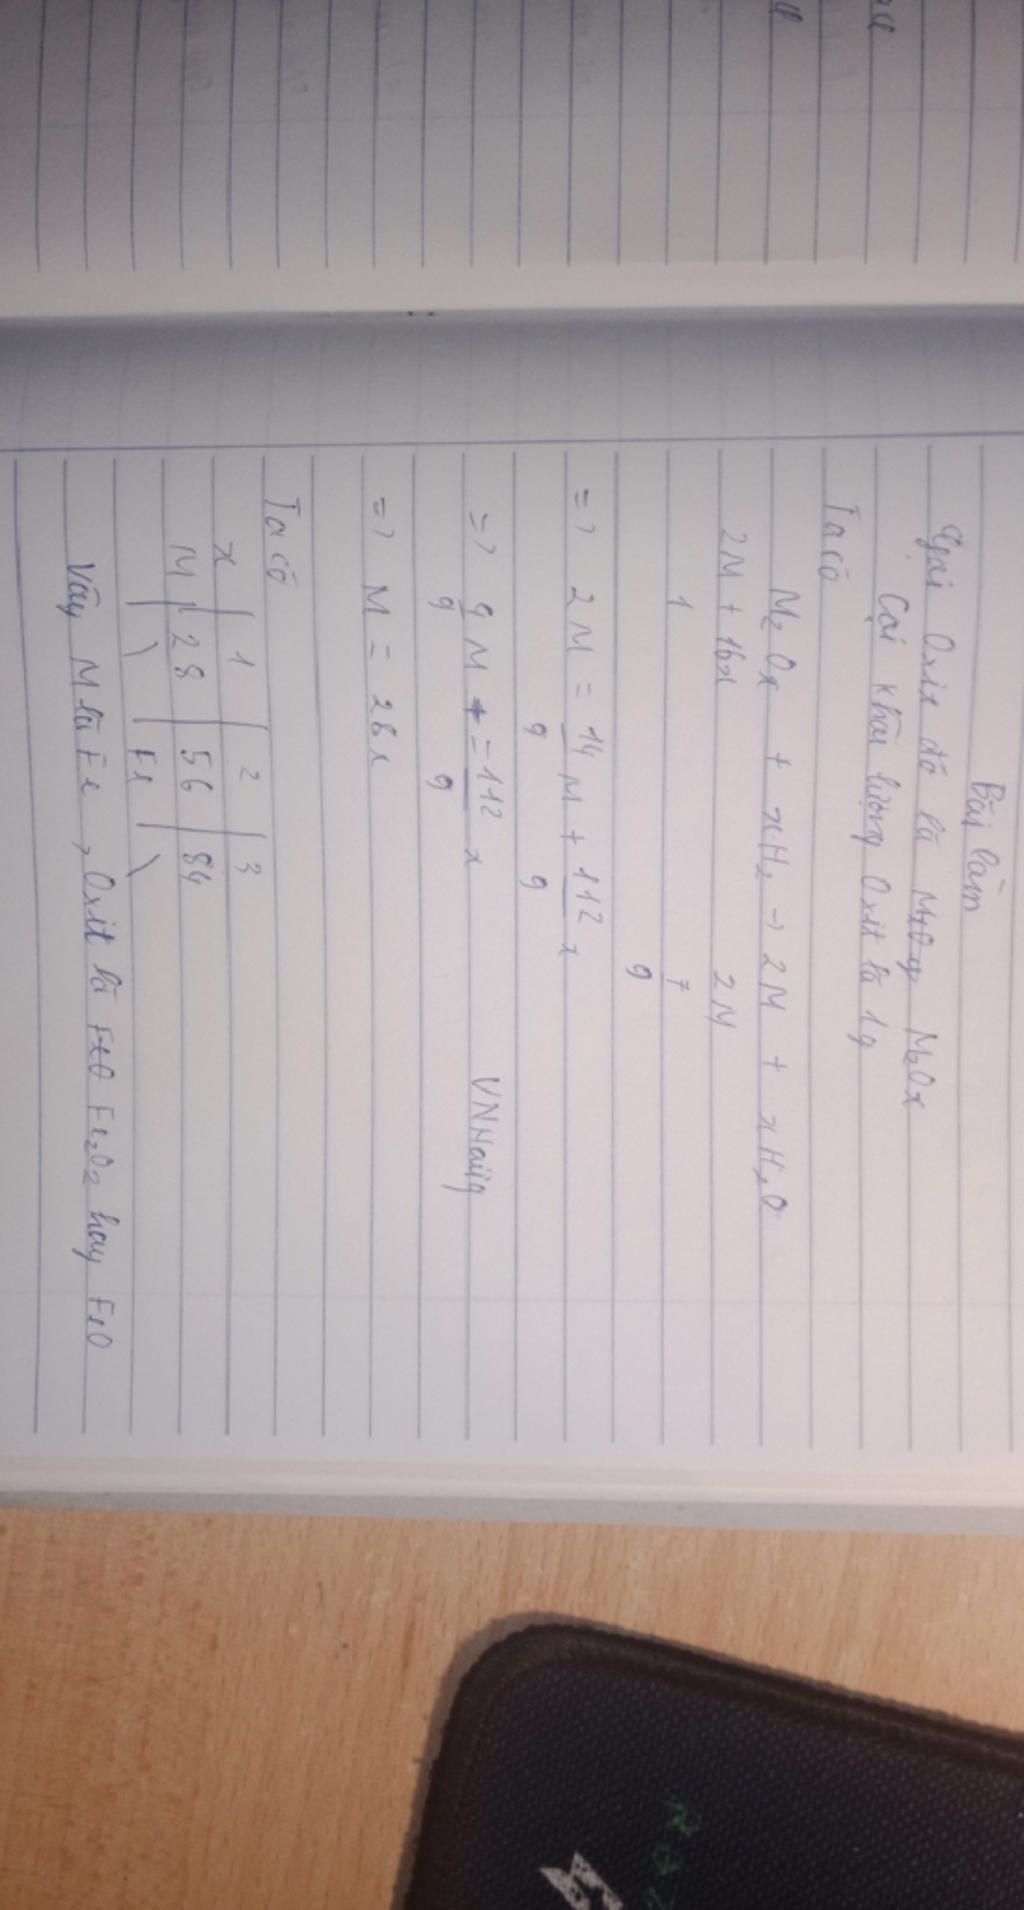 Bài làm
Gọi Oxit đó là MxOy M2Ox
Gọi khối lượng Oxit là 1g
Ta có
M2Ox + xH2 → 2M + xH2O
2M + 16x 2M
1 7/9
=> 2M = 14/9 M + 112/9 x
=> 4/9 M = 112/9 x VNHaiig
=> M = 28x
Ta có
x | 1 | 2 | 3
M | 28 | 56 | 84
\ | Fe | \
Vậy M là Fe, Oxit là FeO Fe2O2 hay FeO